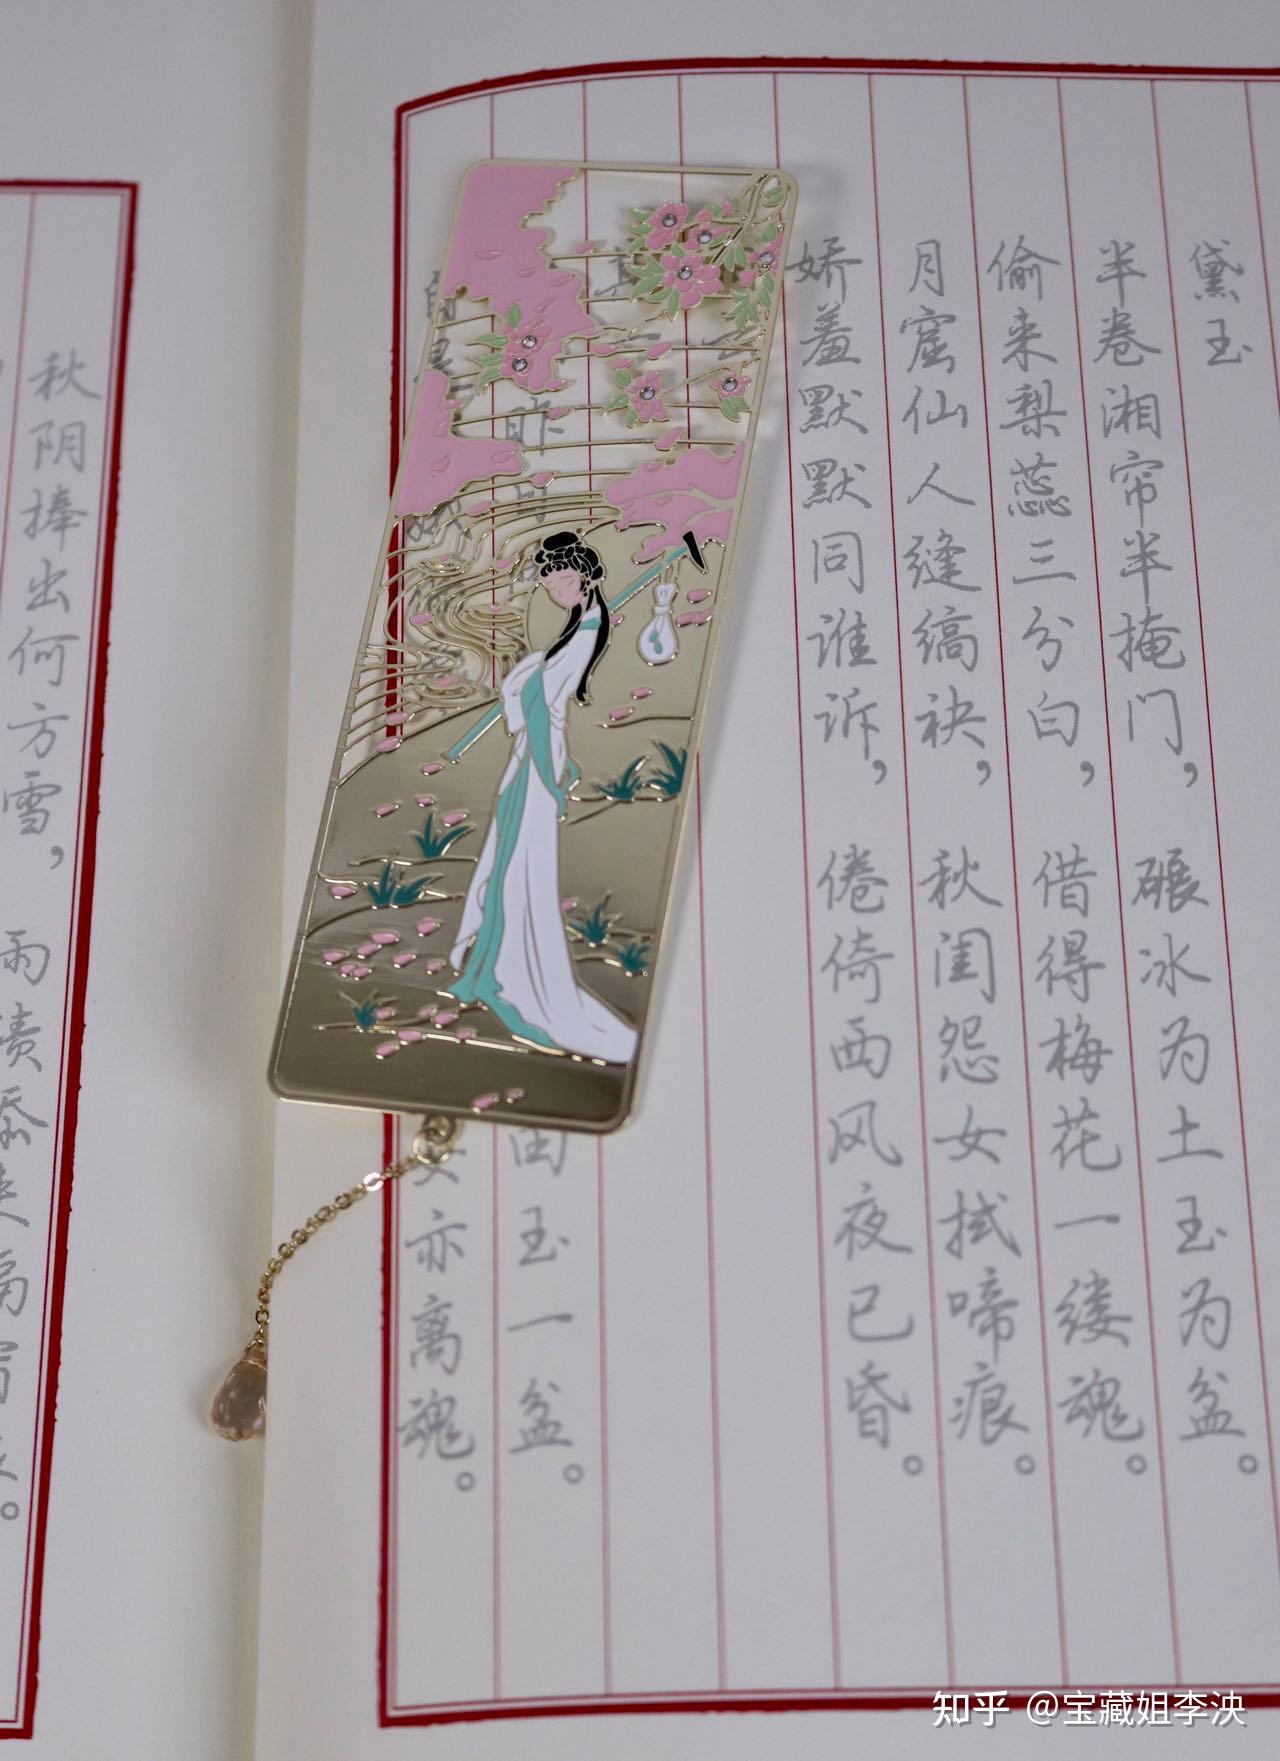 黛玉
半卷湘帘半掩门，碾冰为土玉为盆。
偷来梨蕊三分白，借得梅花一缕魂。
月窟仙人缝缟袂，秋闺怨女拭啼痕。
娇羞默默同谁诉，倦倚西风夜已昏。
昨 田玉一盆。
女亦离魂。
秋阴捧出何方雪，雨渍添来隔
知乎 @宝藏姐李泱